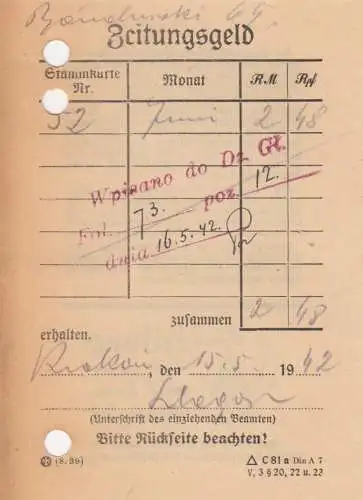 Zeitungsgeld
Stammkarte Nr. Monat RM Rpf
52 Juni 2 48
Wpisano do Dz. Gł.
Fol. 73. poz. 12.
dnia 16.5.42.
zusammen 2 48
erhalten.
Krakau, den 15.5. 1942
(Unterschrift des einziehenden Beamten)
Bitte Rückseite beachten!
(8.39) C 81 a Din A 7
V, 3 § 20, 22 u. 23